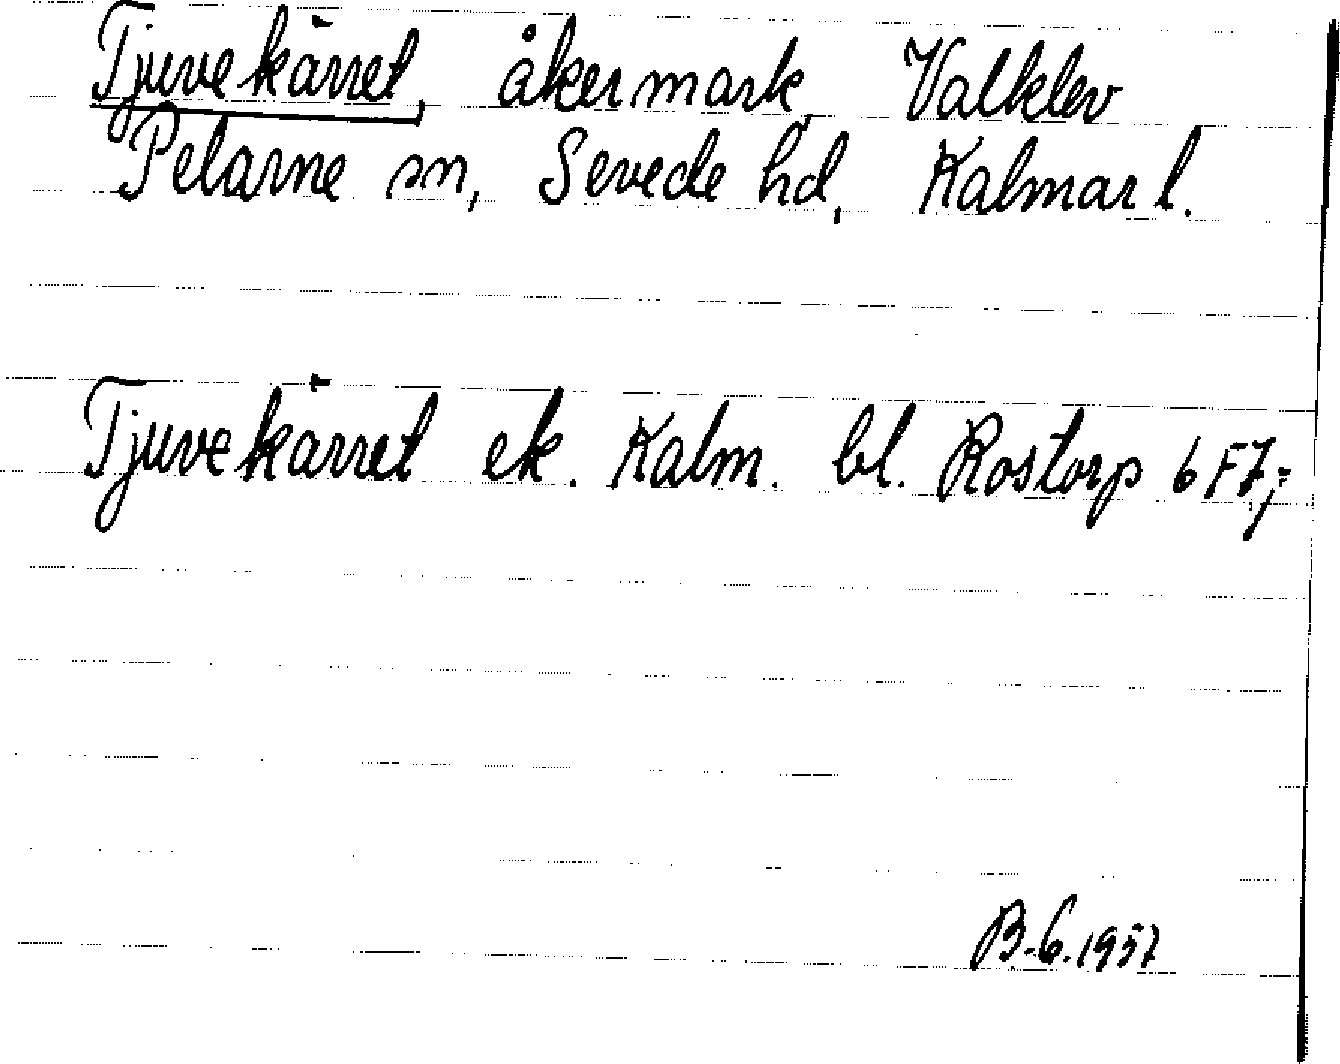 Tjuvekärret, åkermark, Valklev
Pelarne sn, Sevede hd, Kalmar l.
Tjuvekärret ek. Kalm. bl. Rostorp 6 F7;-
B. G. 1957